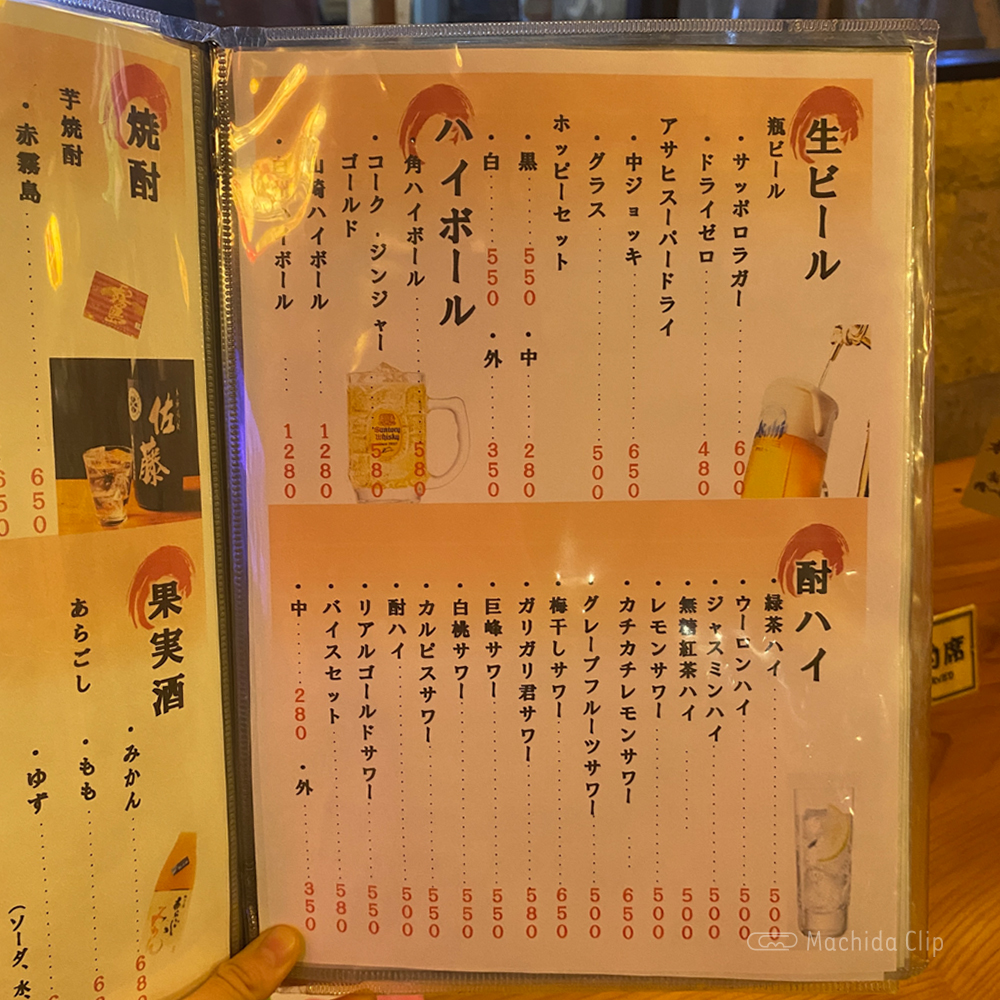 生ビール
瓶ビール
・サッポロラガー 600
・ドライゼロ 480
アサヒスーパードライ
・中ジョッキ 650
・グラス 500
ホッピーセット
・黒 550 ・中 280
・白 550 ・外 350
ハイボール
・角ハイボール 580
・コーク・ジンジャー 580
ゴールド
山崎ハイボール 1280
ボール 1280
酎ハイ
・緑茶ハイ 500
・ウーロンハイ 500
・ジャスミンハイ 500
・無糖紅茶ハイ 500
・レモンサワー 500
・カチカチレモンサワー 650
・グレープフルーツサワー 500
・梅干しサワー 650
・ガリガリ君サワー 580
・巨峰サワー 500
・白桃サワー 550
・カルピスサワー 550
・酎ハイ 500
・リアルゴールドサワー 550
・バイスセット 580
・中 280 ・外 350
焼酎
芋焼酎
・赤霧島 650
佐藤
果実酒
あらごし
・みかん
・もも
・ゆず
(ソーダ、水、
Asahi
席
Machida Clip